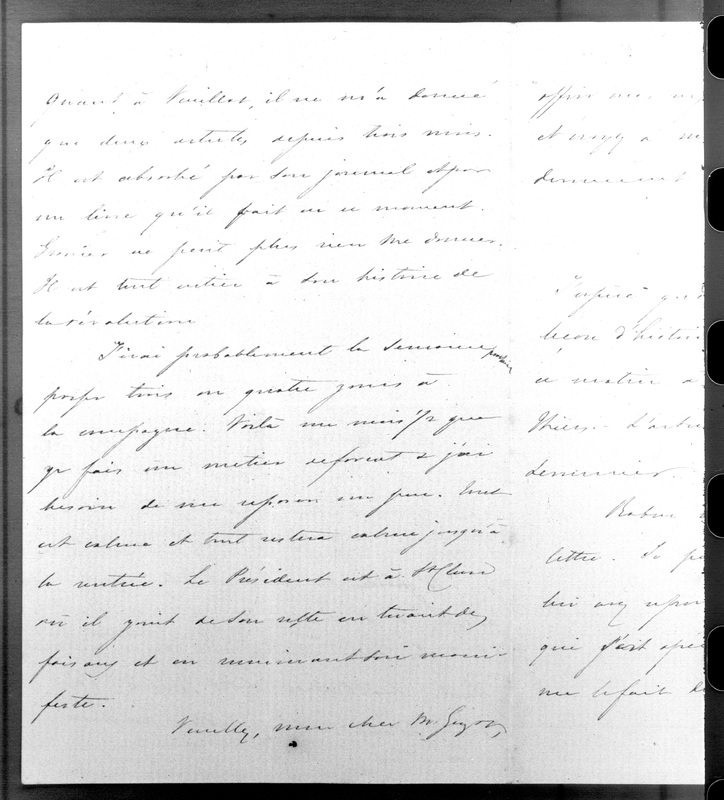 Quant à Veuillot, il ne m'a donné
que deux articles depuis trois mois.
Il est absorbé par son journal et par
un livre qu'il fait en ce moment.
ne peut plus rien me donner.
Il est tout entier à son histoire de
la révolution
J'irai probablement la semaine prochaine
passer trois ou quatre jours à
la campagne. Voilà un mois 1/2 que
je fais un métier de forçat & j'ai
besoin de me reposer un peu. Tout
est calme et tout restera calme jusqu'à
la rentrée. Le Président est à St Cloud
où il jouit de son reste en tirant des
faisans et en ruminant son mani-
feste.
Veuillez, mon cher M.
offrir
et croyez à
J'espère
leçon d'histoire
ce matin a
Thiers. L'autre
dernier.
lettre. Je
qui s'est
me le fait